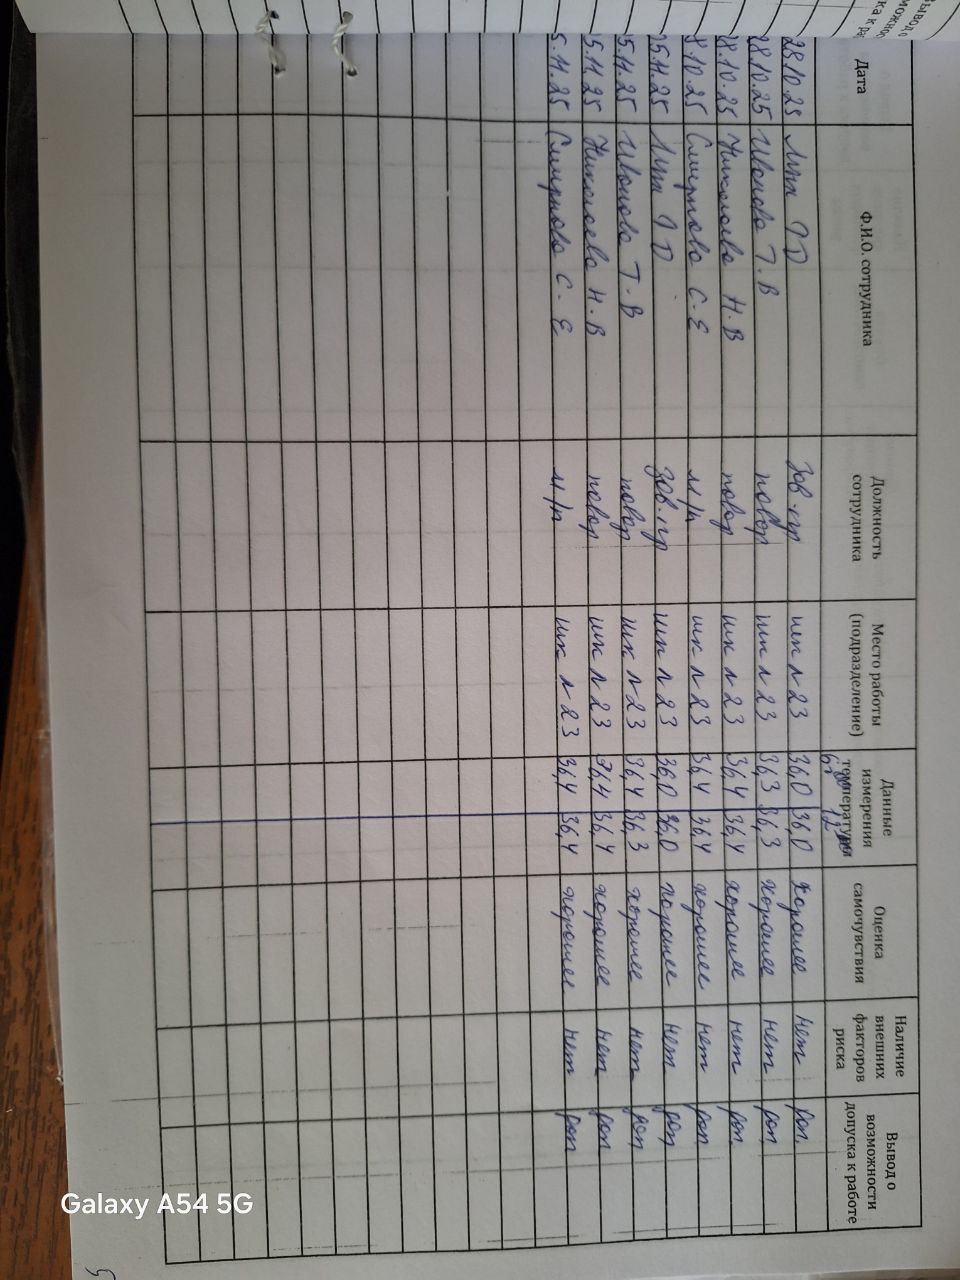 Дата Ф.И.О. сотрудника Должность сотрудника Место работы (подразделение) Данные измерения температуры Оценка самочувствия Наличие внешних факторов риска Вывод о возможности допуска к работе
28.10.25 зав.пр шк л 23 36,0 36,0 хорошее нет
28.10.25 Иванова Т.В повар шк л 23 36,3 36,3 хорошее нет
8.10.25 Николаева Н.В повар шк л 23 36,4 36,4 хорошее нет
8.10.25 Смирнова С.Е м/п шк л 23 36,4 36,4 хорошее нет
05.11.25 зав.пр шк л 23 36,0 36,0 хорошее нет
5.11.25 Иванова Т.В повар шк л 23 36,4 36,3 хорошее нет
5.11.25 Николаева Н.В повар шк л 23 36,4 36,4 хорошее нет
5.11.25 Смирнова С.Е м/п шк л 23 36,4 36,4 хорошее нет
Galaxy A54 5G